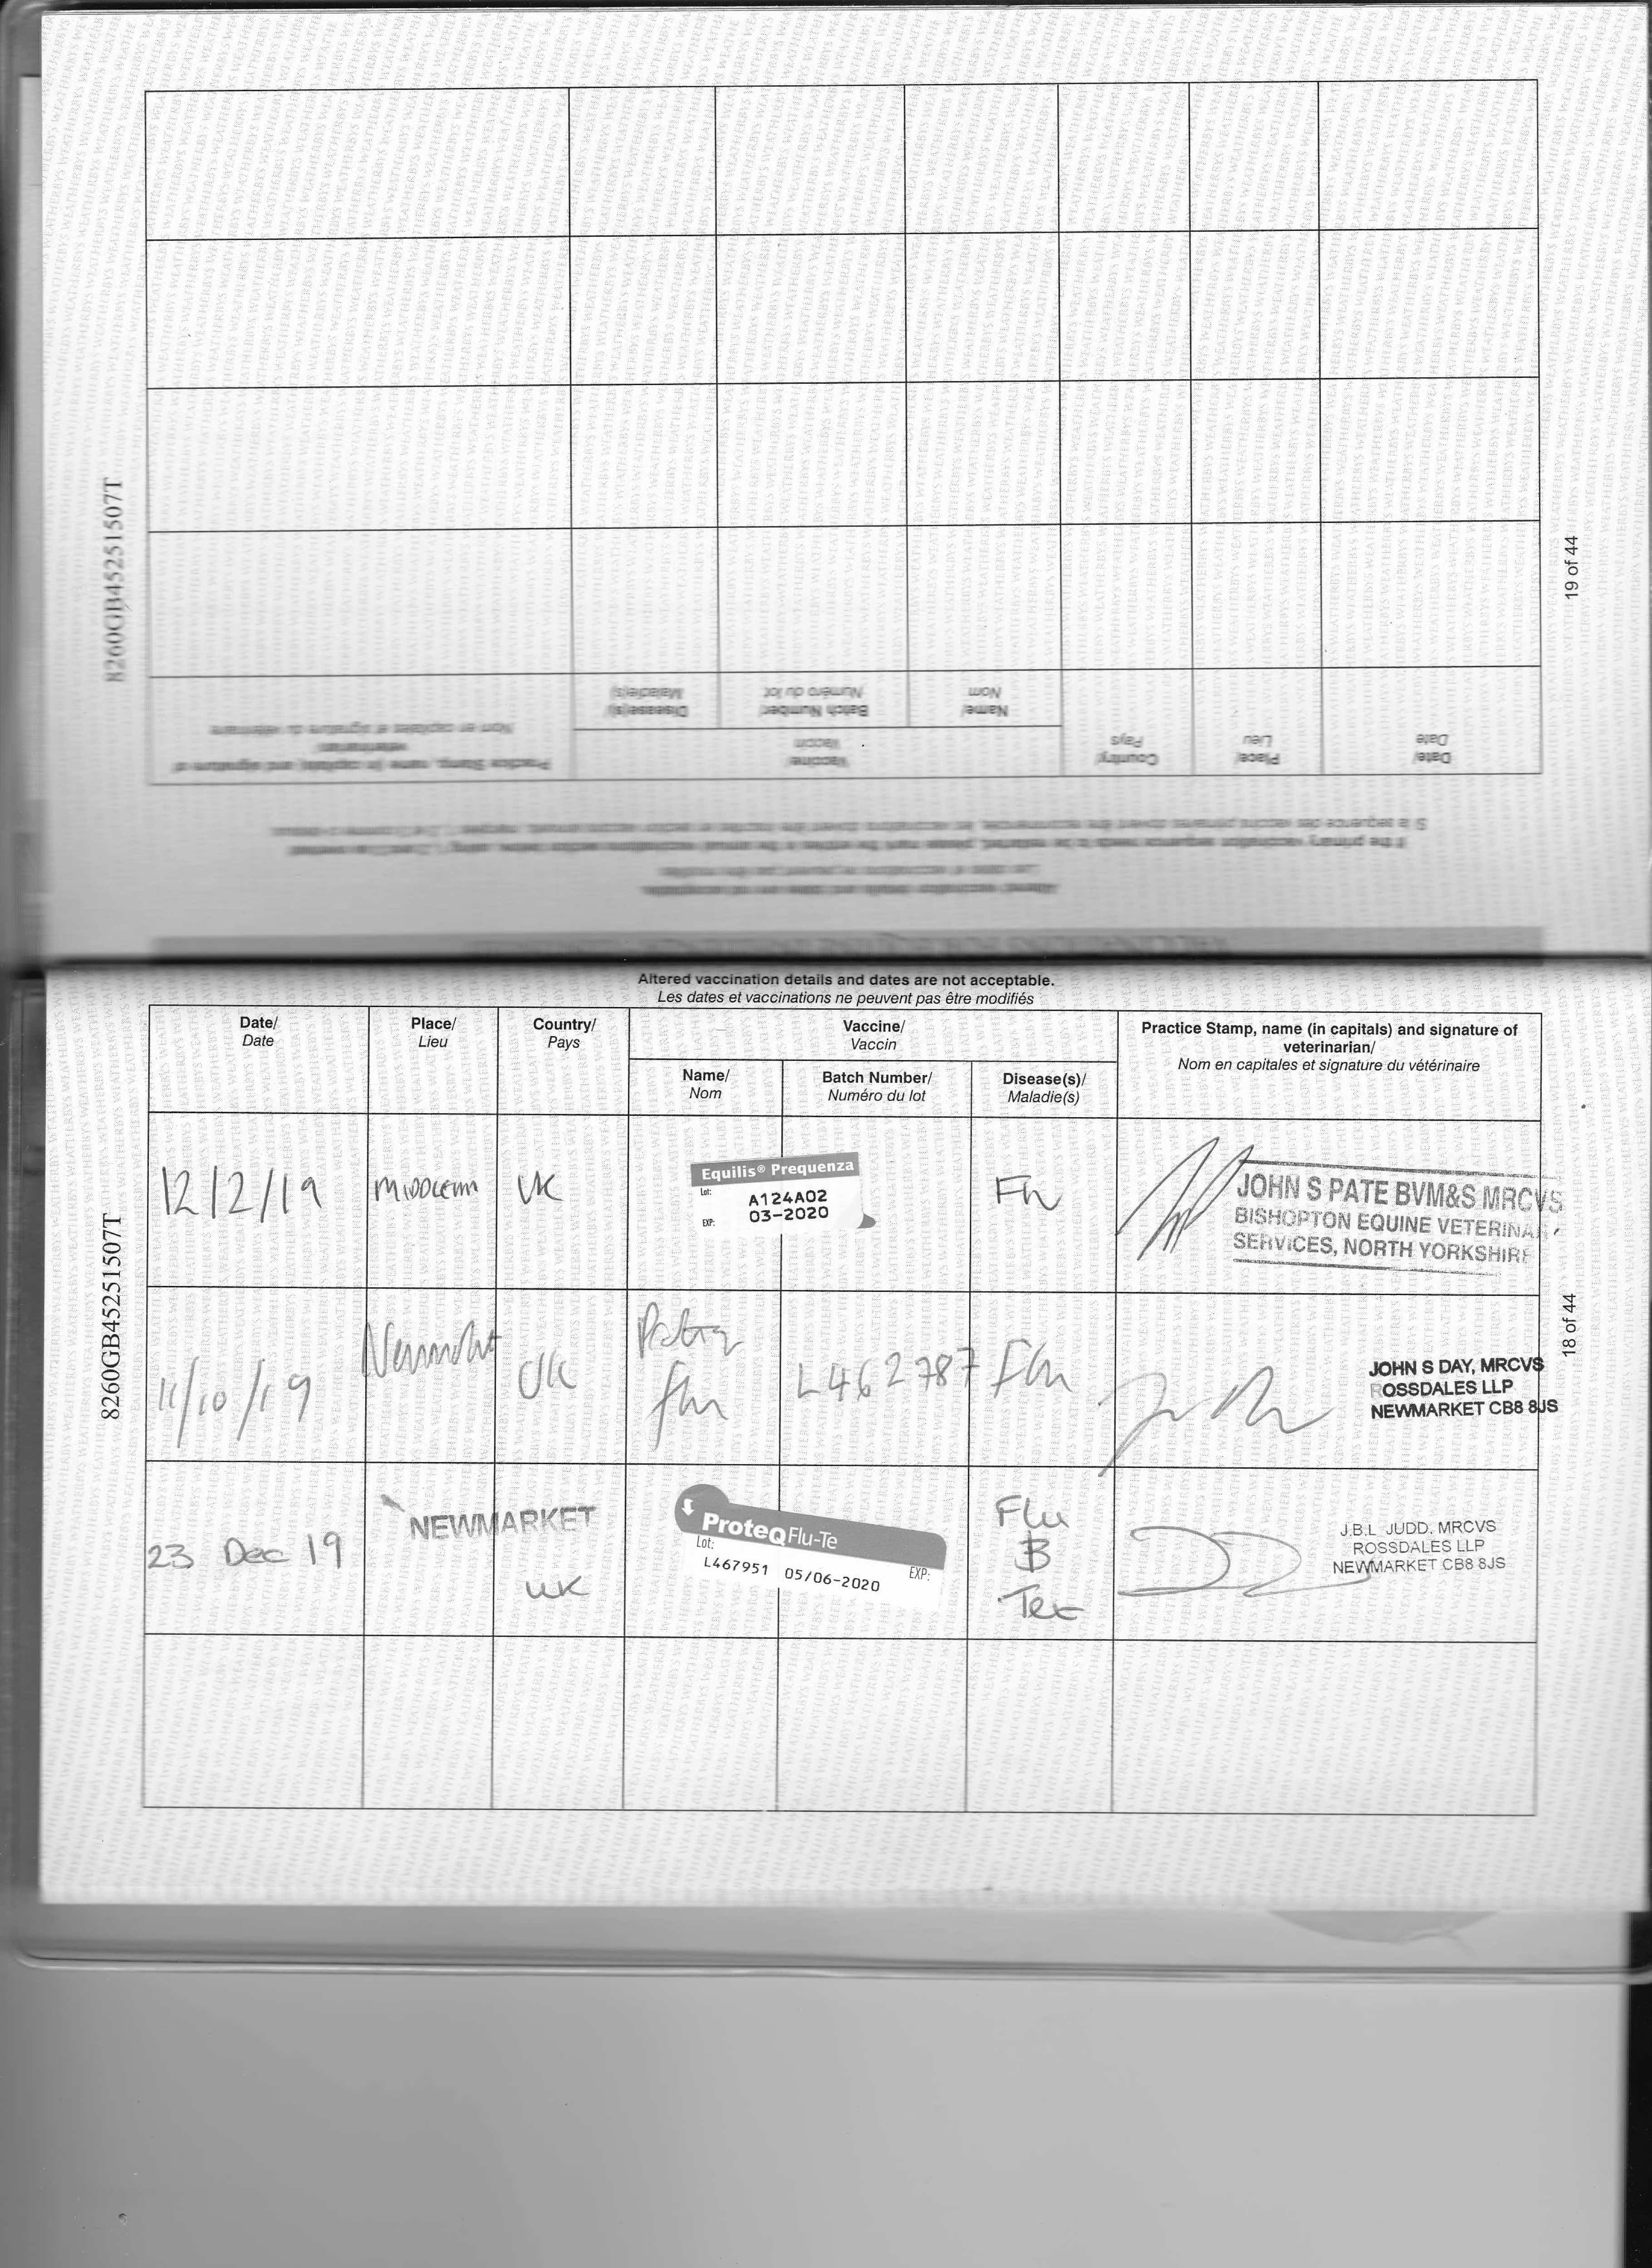 8260GB45251507T
19 of 44
Date/
Date
Place/
Lieu
Country/
Pays
Vaccine/
Vaccin
Name/
Nom
Batch Number/
Numéro du lot
Disease(s)/
Maladie(s)
Practice Stamp, name (in capitals) and signature of
veterinarian/
Nom en capitales et signature du vétérinaire
If the primary vaccination sequence needs to be restarted, please mark the entries in the annual vaccinations section below
Altered vaccination details and dates are not acceptable.
Les dates et vaccinations ne peuvent pas être modifiés
Altered vaccination details and dates are not acceptable.
Les dates et vaccinations ne peuvent pas être modifiés
Date/
Date
Place/
Lieu
Country/
Pays
Vaccine/
Vaccin
Name/
Nom
Batch Number/
Numéro du lot
Disease(s)/
Maladie(s)
Practice Stamp, name (in capitals) and signature of
veterinarian/
Nom en capitales et signature du vétérinaire
12/2/19
MIDDLEHAM
UK
Equilis® Prequenza
Lot: A124A02
EXP: 03-2020
Flu
JOHN S PATE BVM&S MRCVS
BISHOPTON EQUINE VETERINARY
SERVICES, NORTH YORKSHIRE
11/10/19
Newmarket
UK
Proteq
flu
L462787
Flu
JOHN S DAY, MRCVS
ROSSDALES LLP
NEWMARKET CB8 8JS
23 Dec 19
NEWMARKET
UK
ProteqFlu-Te
Lot: EXP:
L467951 05/06-2020
Flu
&
Tet
J.B.L JUDD. MRCVS
ROSSDALES LLP
NEWMARKET CB8 8JS
8260GB45251507T
18 of 44